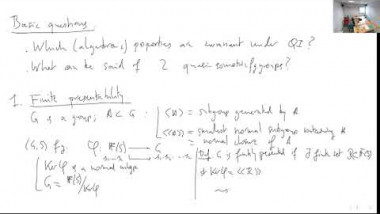 Basic questions.
. Which (algebraic) properties are invariant under QI?
. What can be said of 2 quasi isometric f.g. groups?
1. Finite presentability
G is a group; R ⊂ G : ⟨R⟩ = subgroup generated by R
⟨⟨R⟩⟩ = smallest normal subgroup containing R
= normal closure of R
(G, S) f.g. φ: F(S) → G
Ker φ is a normal subgp
G = F(S)/Ker φ
Def G is finitely presented if ∃ finite set R ⊂ F(S)
Ker φ = ⟨⟨R⟩⟩